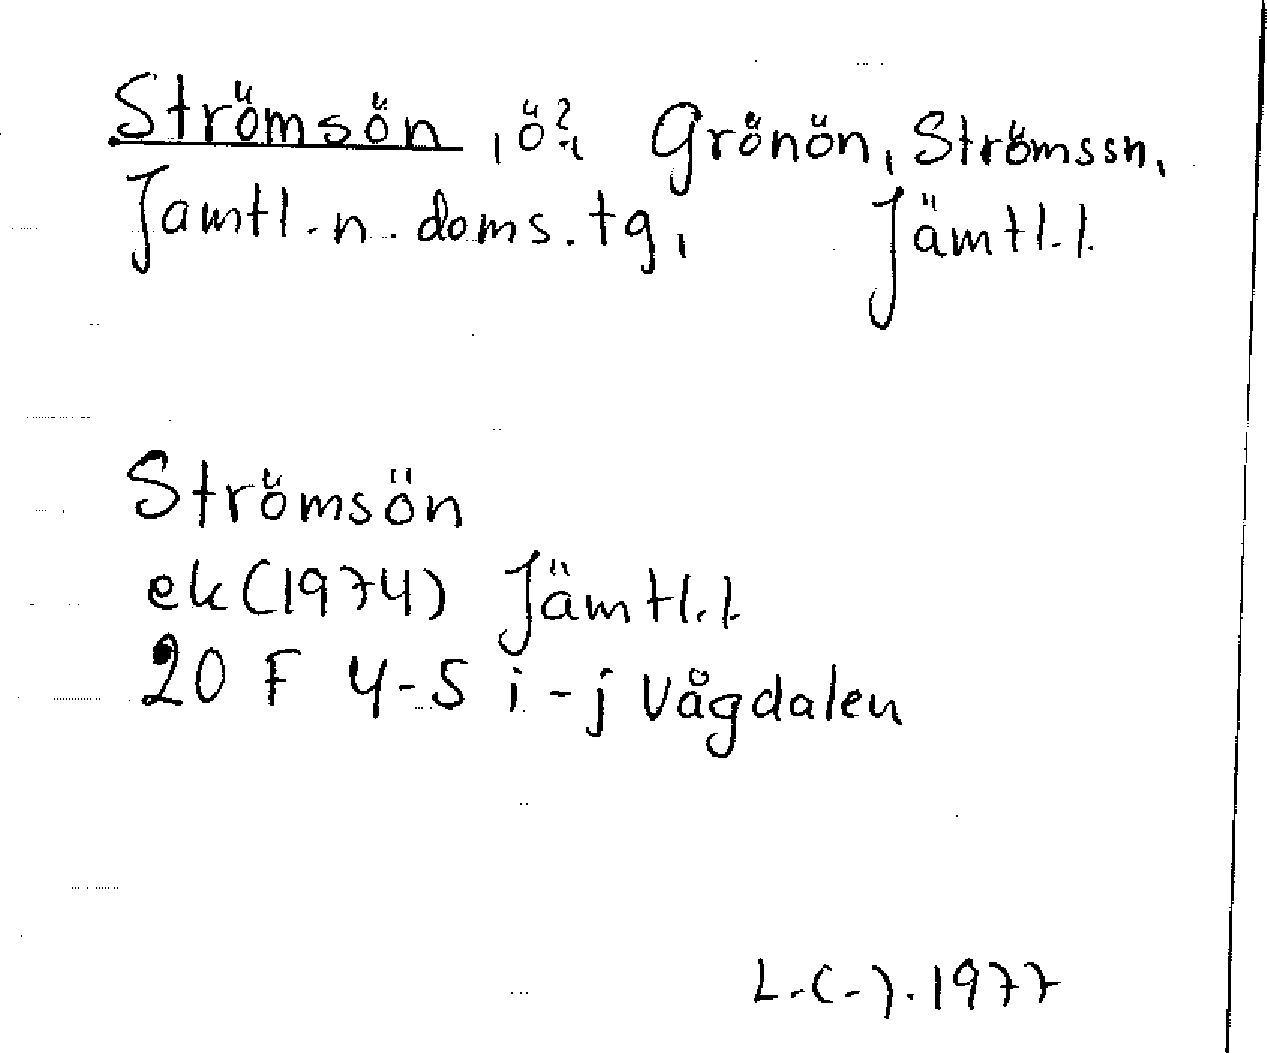 Strömsön, ö?, Grönön, Strömssn,
Jämtl. n. doms. tg, Jämtl. l.
Strömsön
ek (1974) Jämtl. l.
20 F 4-5 i-j Vågdalen
L.C-). 1977